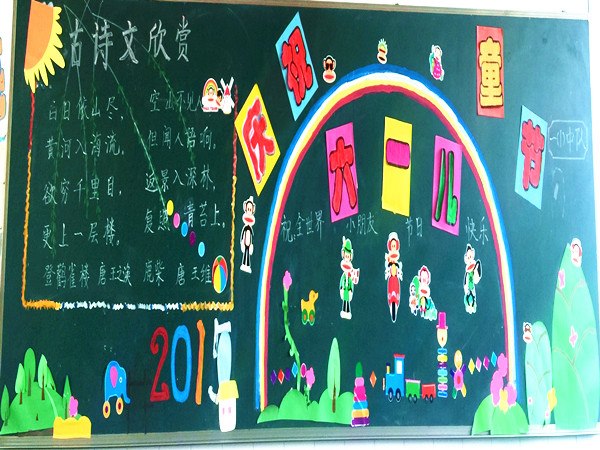 古诗文欣赏
白日依山尽，
黄河入海流。
欲穷千里目，
更上一层楼。
登鹳雀楼 唐 王之涣
空山不见人
但闻人语响。
返景入深林，
复照青苔上。
鹿柴 唐 王维
庆祝六一儿童节
祝全世界 小朋友 节日 快乐
201